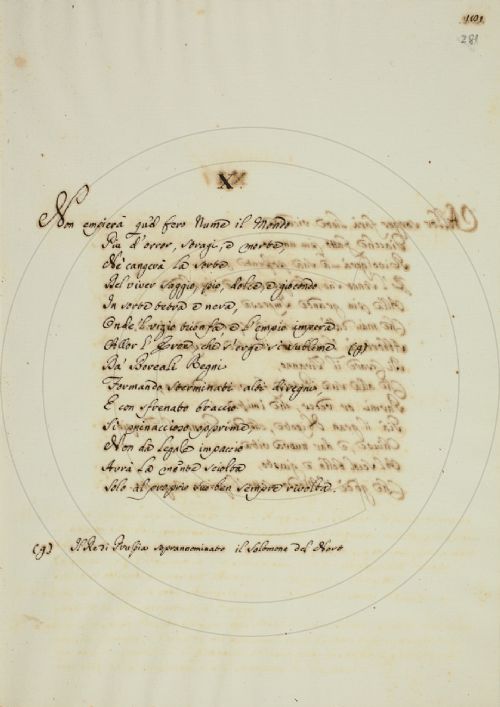 281
X
Non empierà quel fero Nume il Mondo
Più d'orror, stragi, e morte,
Nè cangerà la sorte
Del viver saggio, pio, dolce e giocondo
In sorte tetra e nera,
Onde 'l vizio trionfa e l'empio impera
Allor l' che s'erge sì sublime (g)
Da' Boreali Regni
Formando sterminati alti disegni,
E con sfrenato braccio
Si minaccioso opprime,
Non da legale impaccio
Avrà la mente sciolta
Solo al proprio suo ben sempre rivolta.
(g) Il Re di Prussia soprannominato il Salomone del Nort